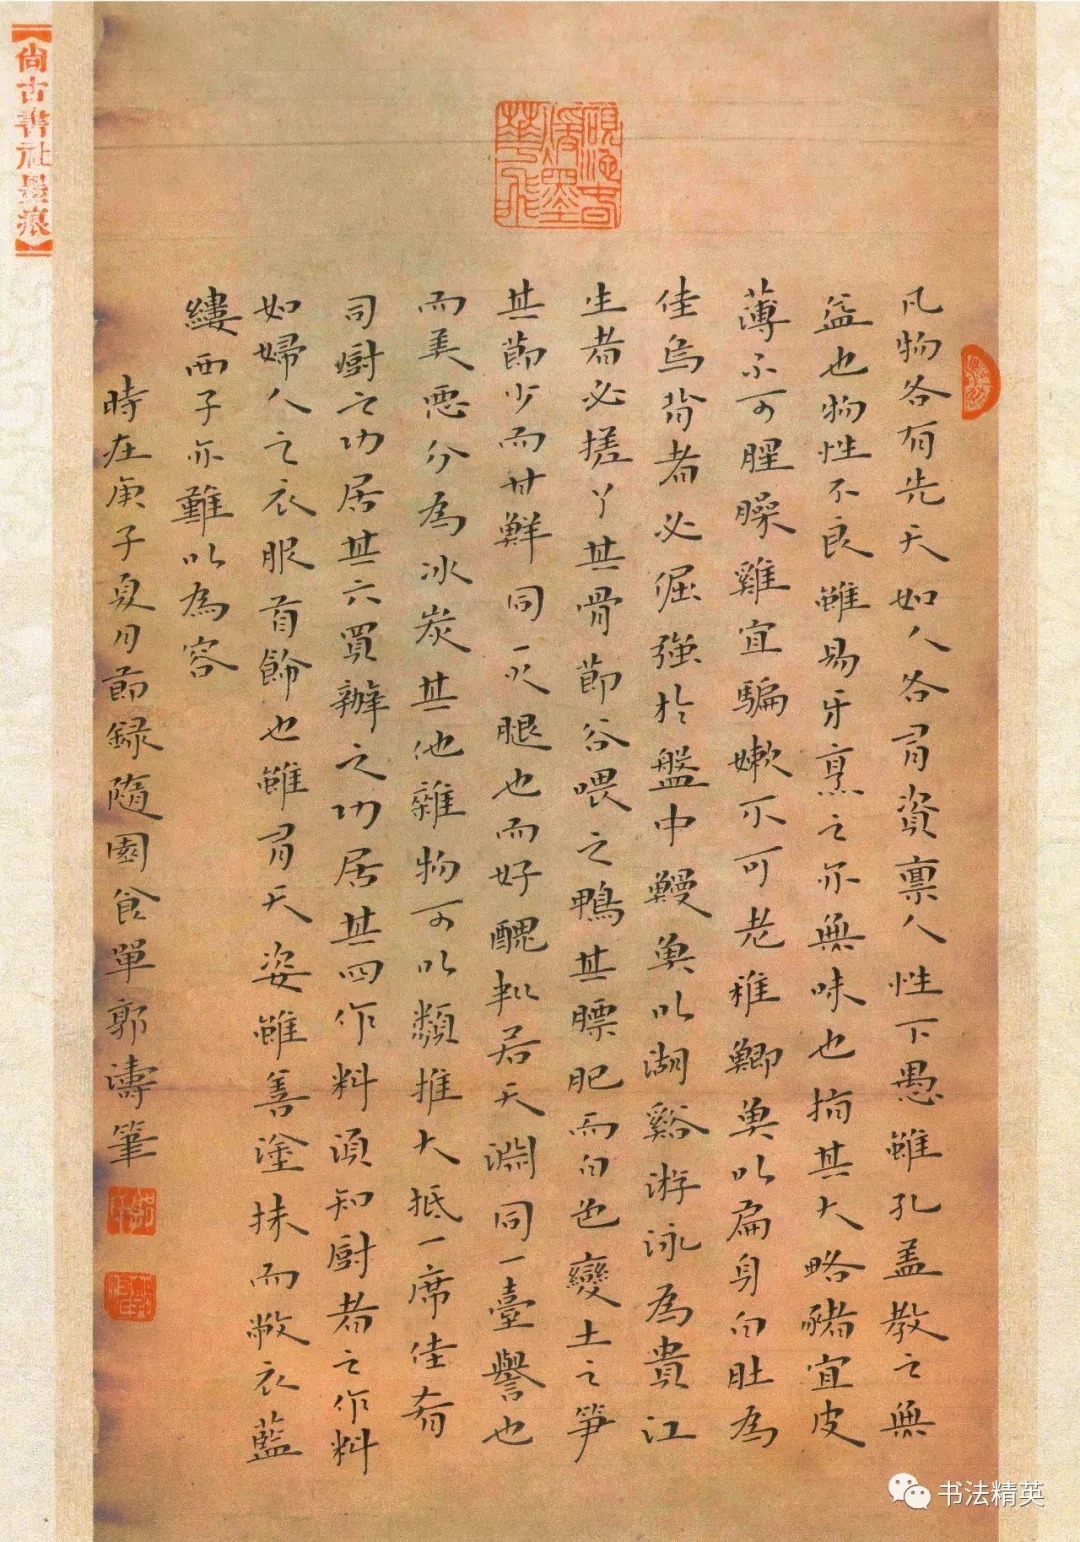 凡物各有先天如人各有資稟人性下愚雖孔孟教之無
益也物性不良雖易牙烹之亦無味也指其大略豬宜皮
薄不可腥臊雞宜騙嫩不可老稚鯽魚以扁身白肚為
佳烏背者必倔強於盤中鰻魚以湖谿游泳為貴江
生者必搓丫其骨節谷喂之鴨其膘肥而白色變土之笋
其節少而甘鮮同一火腿也而好醜判若天淵同一臺譽也
而美惡分為冰炭其他雜物可以類推大抵一席佳肴
司廚之功居其六買辦之功居其四作料須知廚者之作料
如婦人之衣服首飾也雖有天姿雖善塗抹而敝衣藍
縷西子亦難以為容
時在庚子夏月節録隨園食單郭濤筆
【尚古書社墨痕】
书法精英